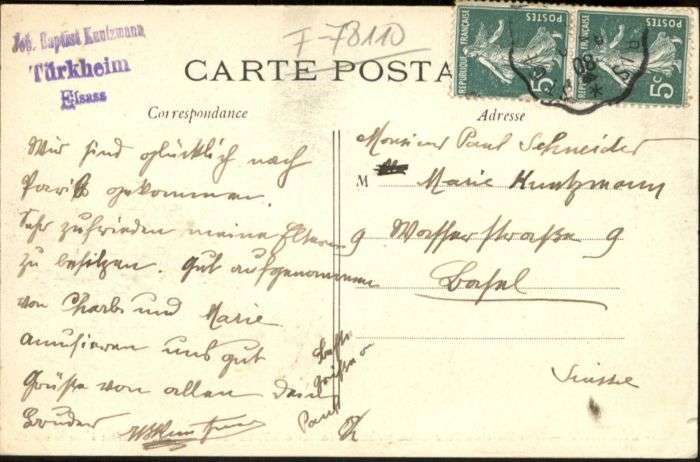 Joh. Baptist Kuntzmann
Türkheim
Elsass
F-78110
CARTE POSTA
Correspondance
Adresse
RÉPUBLIQUE FRANÇAISE
POSTES
5c
RÉPUBLIQUE FRANÇAISE
POSTES
5c
Wir sind glücklich nach
Paris gekommen.
Sehr zufrieden meine Eltern
zu besitzen. Gut aufgenommen
von Charles und Marie
amusieren uns gut
Grüße von allen Dein
Bruder
Beste
Grüße
Paul
Monsieur Paul Schneider
M Marie Kuntzmann
9 Wasserstraße 9
Basel
Suisse